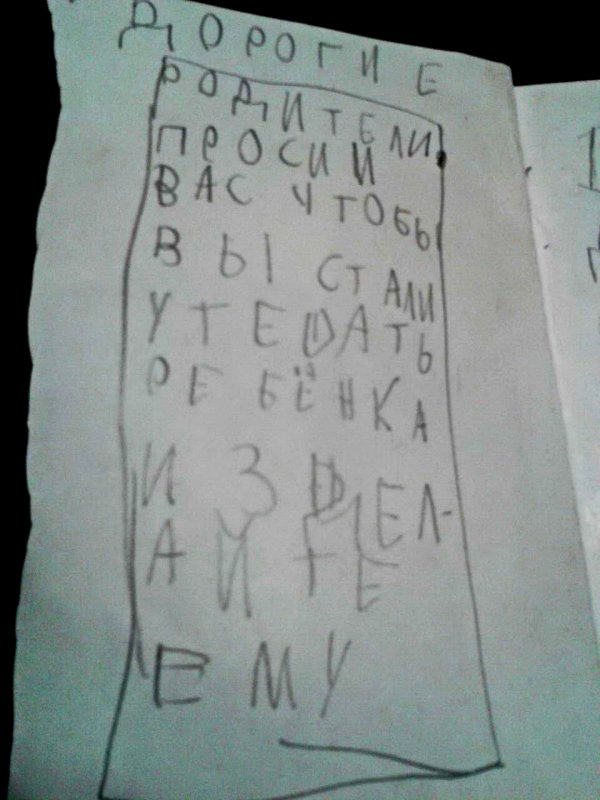 ДОРОГИЕ
РОДИТЕЛИ
ПРОСИМ
ВАС ЧТОБЫ
ВЫ СТАЛИ
РЕБЁНКА
И ЗДЕЛ-
АЙТЕ
ЕМУ